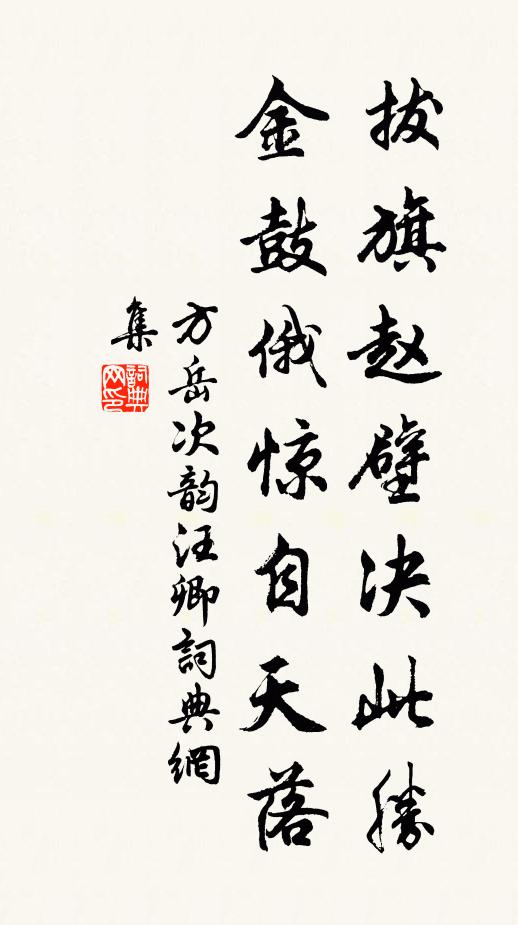 拔旗赵壁决此勝
金鼓俄惊自天落
方岳次韵汪卿詞典網
集
詞典
网印